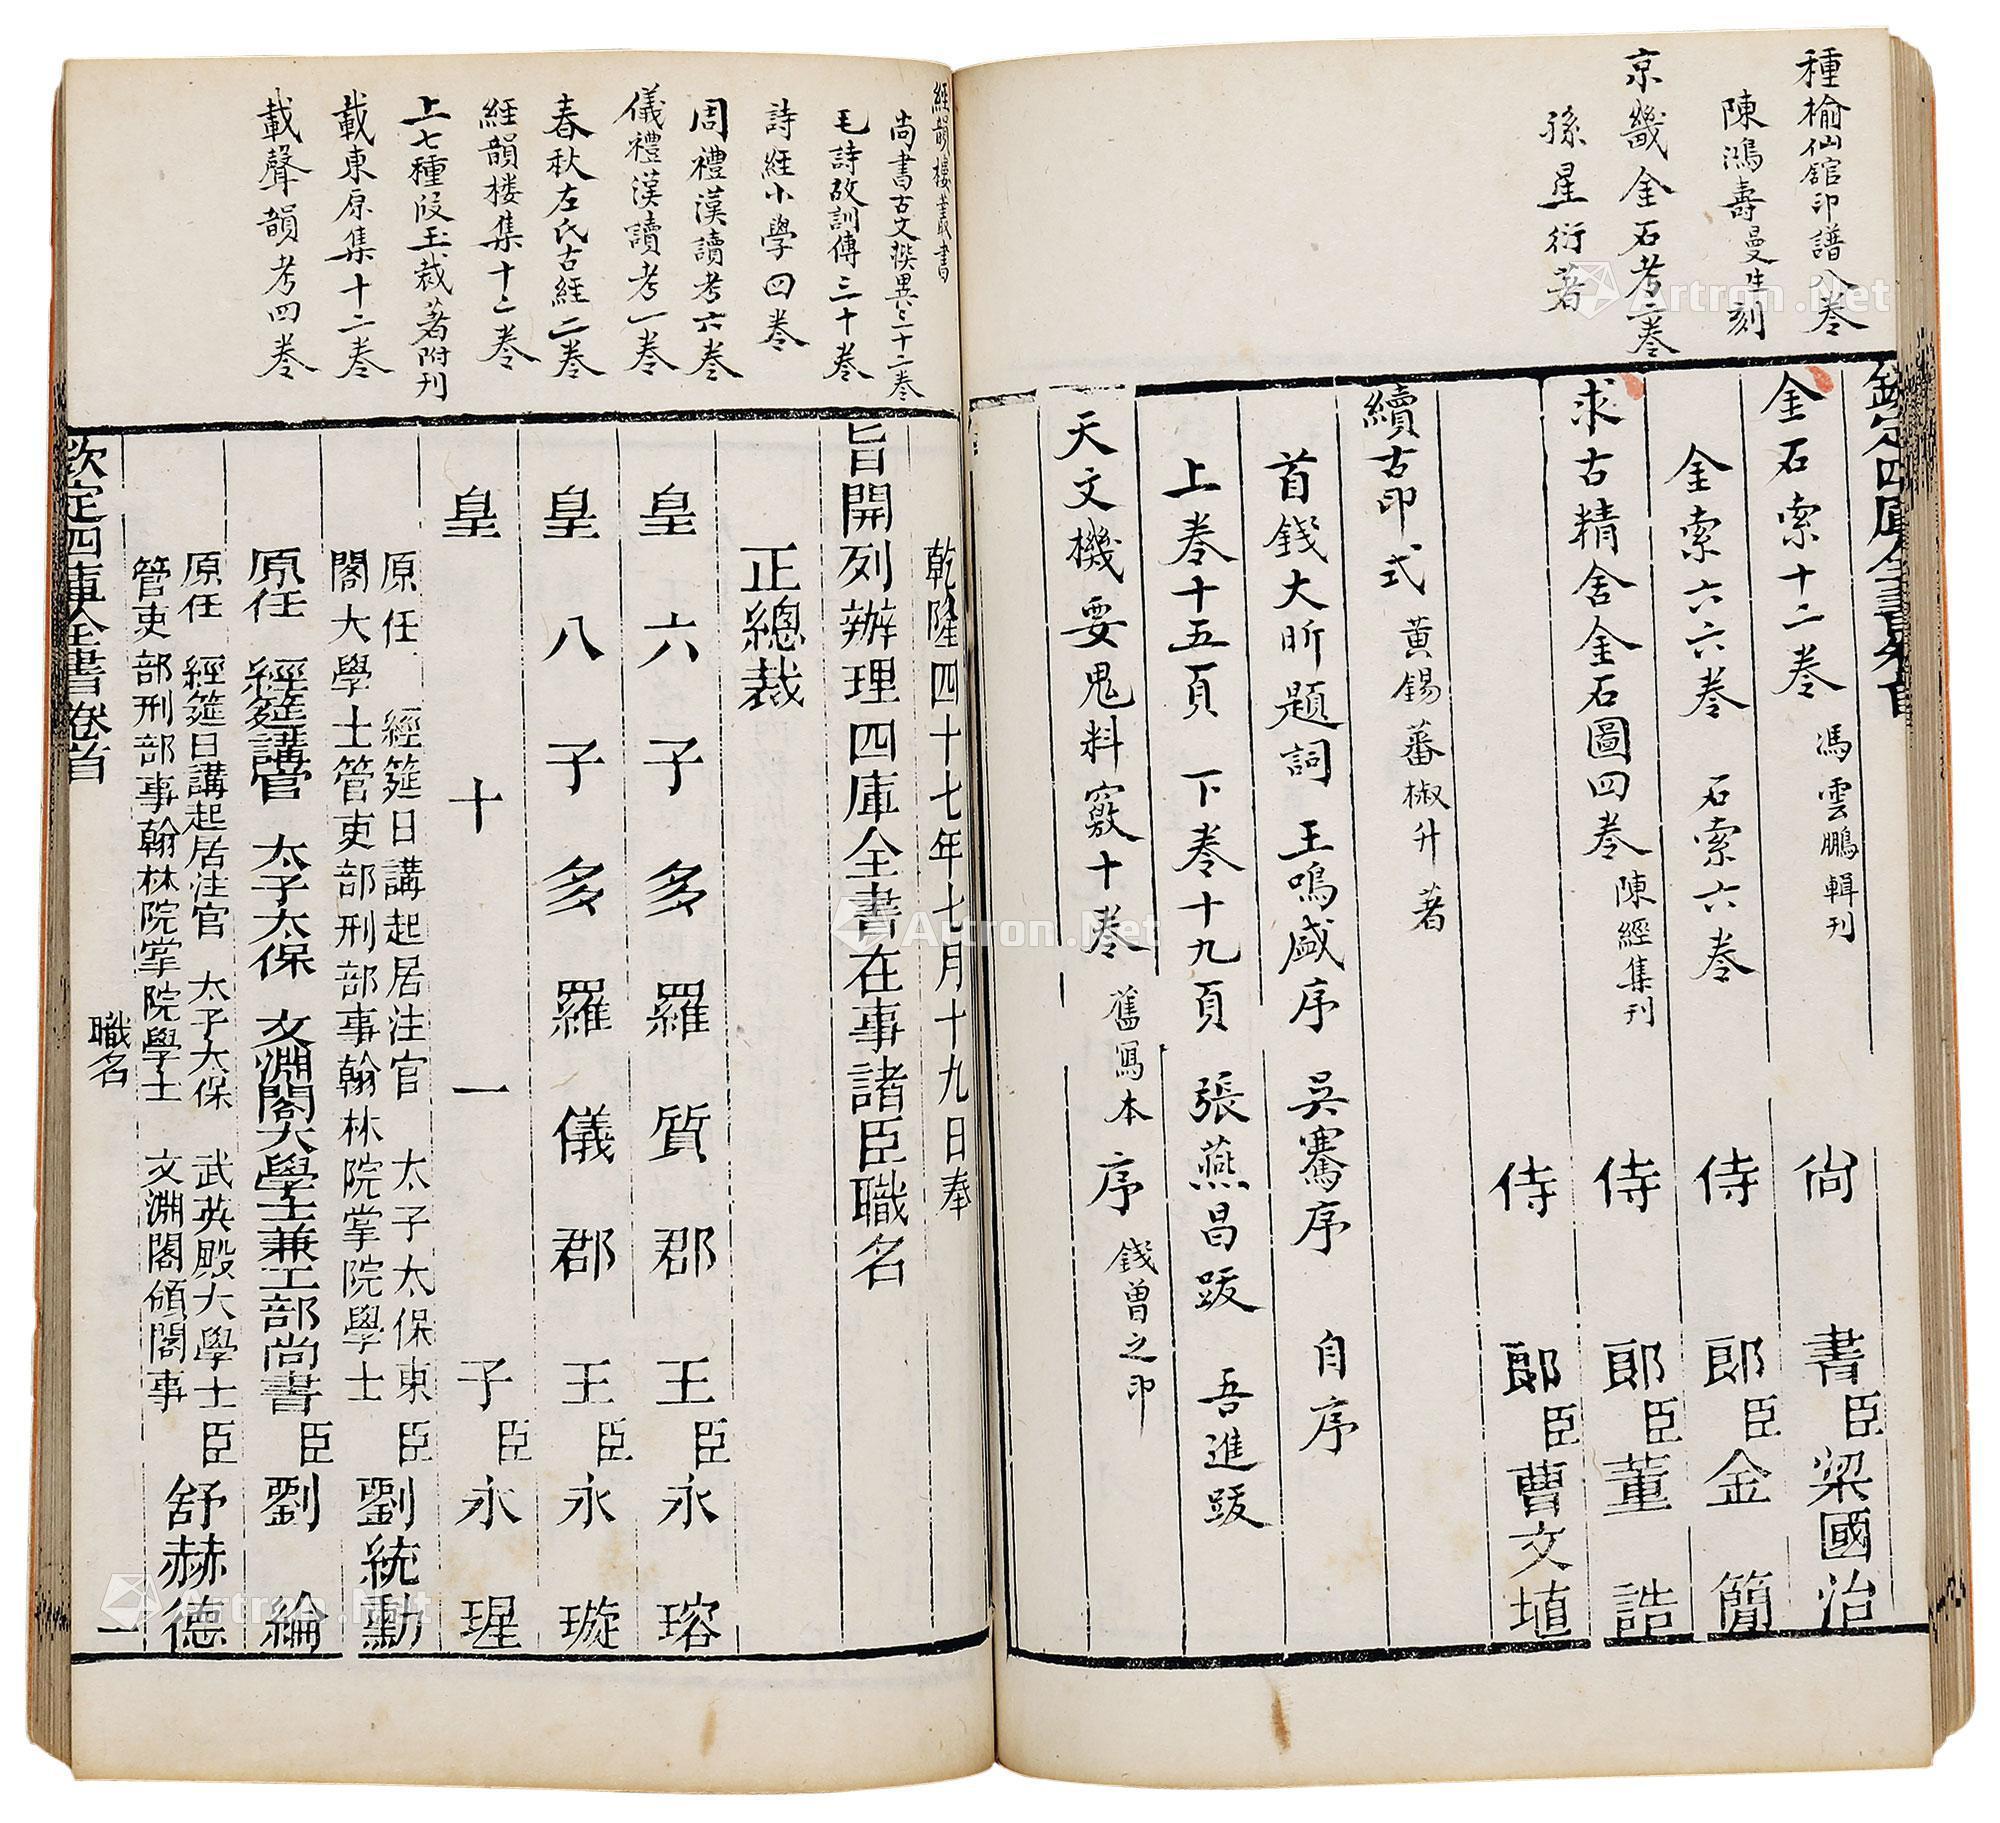 種榆仙館印譜八卷
陳鴻壽曼生刻
京畿金石考二卷
孫星衍著
金石索十二卷 馮雲鵬輯刊
金索六六卷 石索六卷
求古精舍金石圖四卷 陳經集刊
續古印式 黃錫蕃椒升著
首錢大昕題詞 王鳴盛序 吳騫序 自序
上卷十五頁 下卷十九頁 張燕昌跋 吾進跋
天文機要鬼料竅十卷 舊寫本 序 錢曾之印
尙書臣梁國治
侍郞臣金簡
侍郞臣董誥
侍郞臣曹文埴
經韻樓叢書
尚書古文撰異三十二卷
毛詩故訓傳三十卷
詩經小學四卷
周禮漢讀考六卷
儀禮漢讀考一卷
春秋左氏古經二卷
經韻楼集十二卷
上七種段玉裁著附刊
載東原集十二卷
載聲韻考四卷
乾隆四十七年七月十九日奉
旨開列辦理四庫全書在事諸臣職名
正總裁
皇六子多羅質郡王臣永瑢
皇八子多羅儀郡王臣永璇
皇十一子臣永瑆
原任 經筵日講起居注官 太子太保東
閣大學士管吏部刑部事翰林院掌院學士臣劉統勳
原任 經筵講官 太子太保 文淵閣大學士兼工部尚書臣劉綸
原任 經筵日講起居注官 太子太保 武英殿大學士
管吏部刑部事翰林院掌院學士 文淵閣領閣事臣舒赫德
欽定四庫全書卷首
職名
一
Artron.Net
Artron.Net
Artron.Net